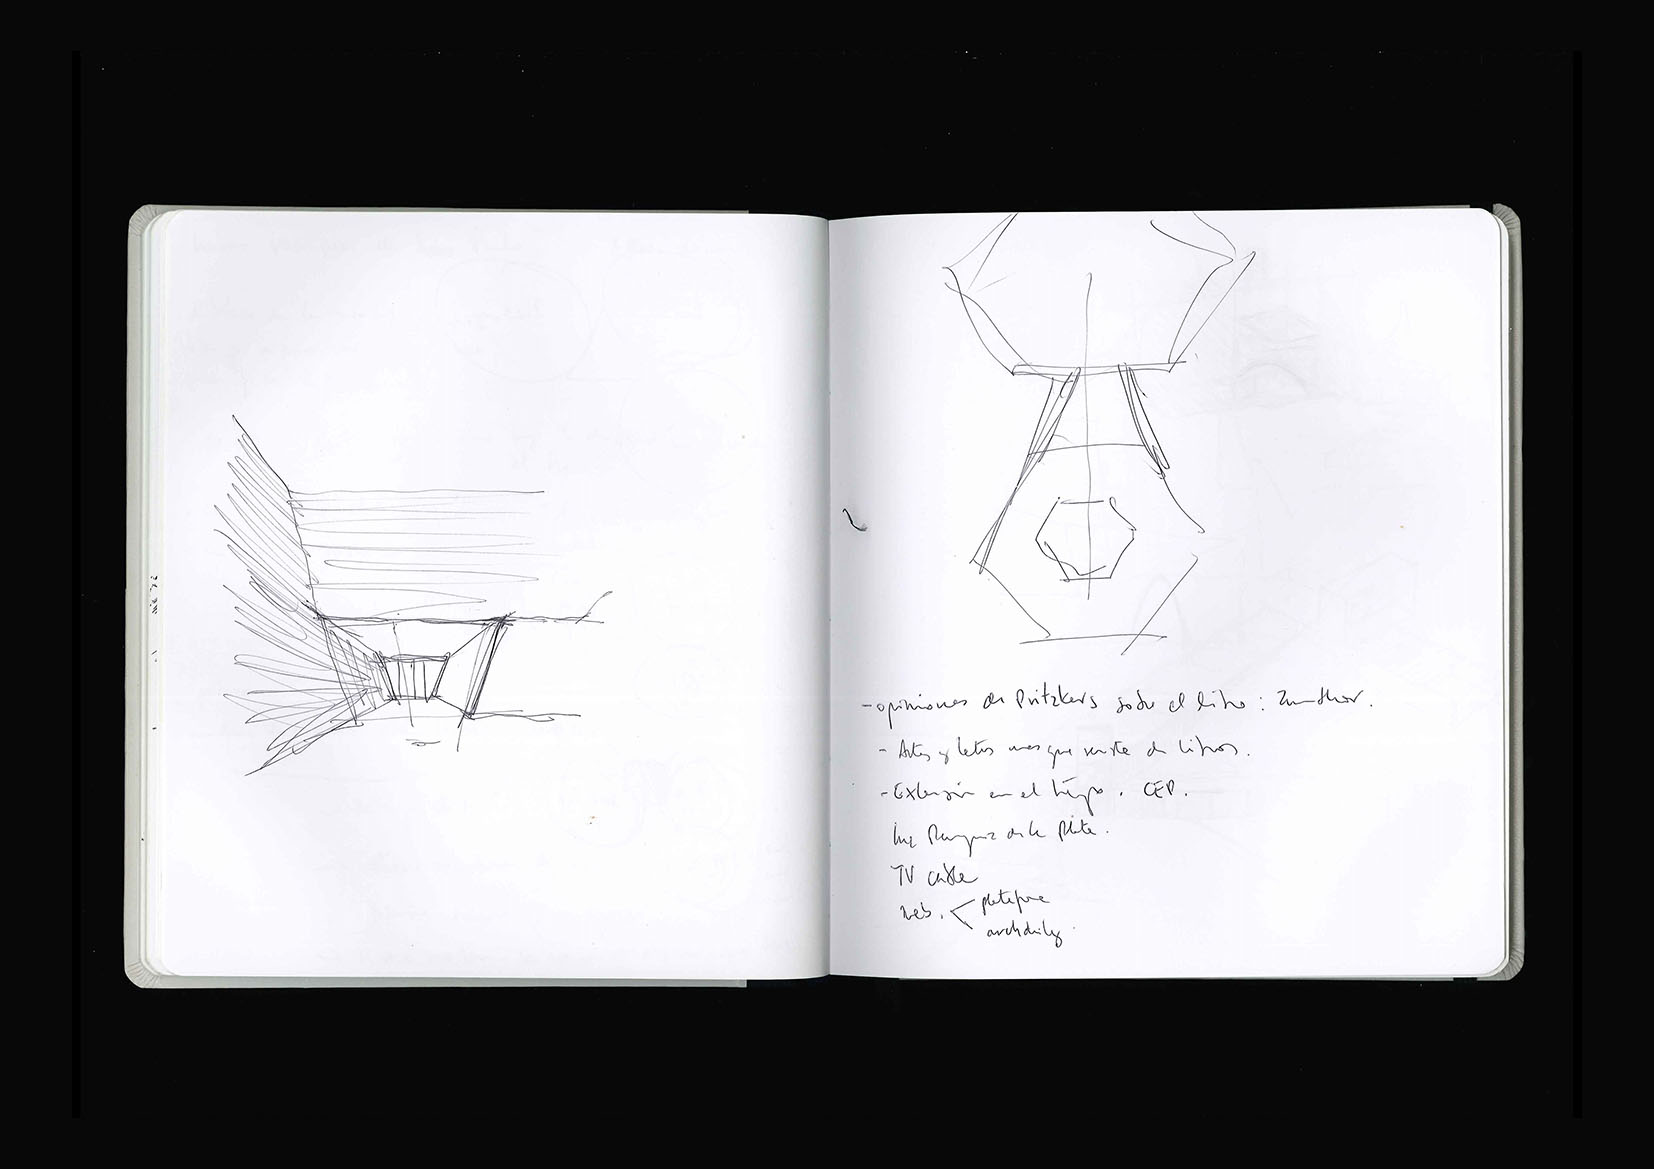 - opiniones de Pritzkers sobre el libro : Zumthor.
- Artes y letras mas que revista de libros.
- Extensión en el tiempo. CEP.
de la Plata.
TV cable
web. < plataforma
archdaily